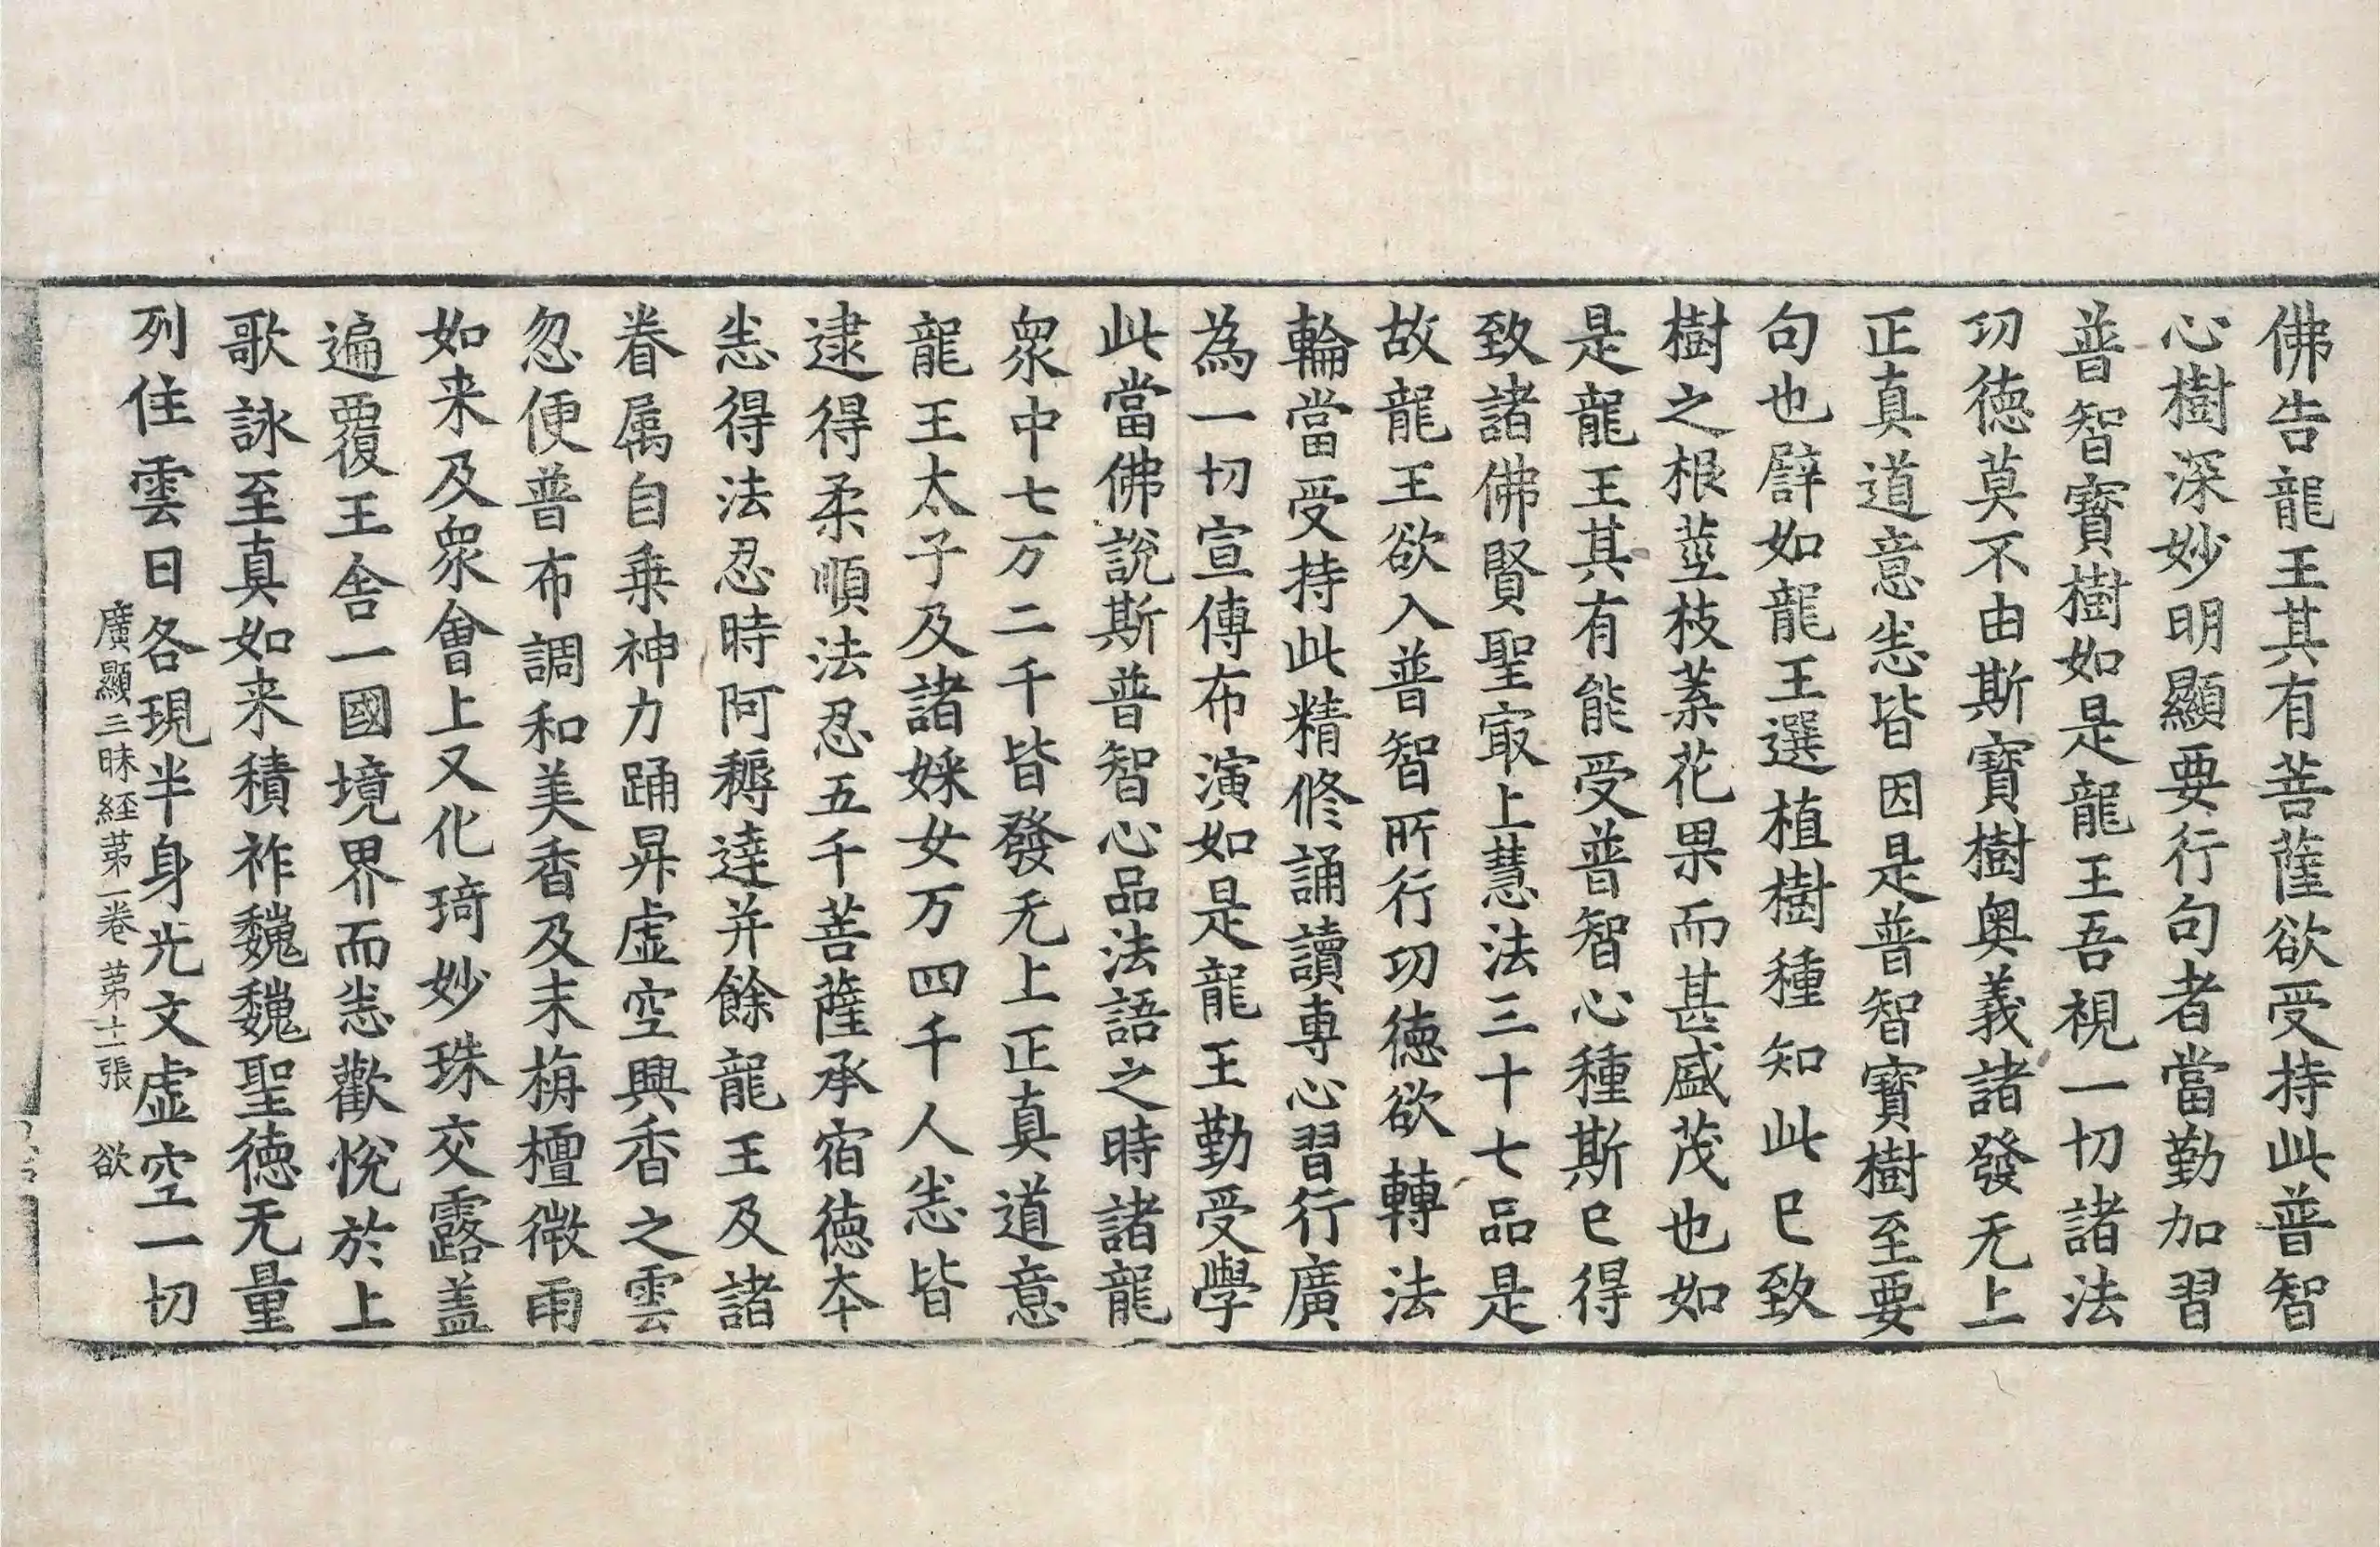 佛告龍王其有菩薩欲受持此普智
心樹深妙明顯要行句者當勤加習
普智寶樹如是龍王吾視一切諸法
功徳莫不由斯寶樹奥義諸發无上
正真道意恙皆因是普智寶樹至要
句也譬如龍王選植樹種知此已致
樹之根莖枝葉花果而甚盛茂也如
是龍王其有能受普智心種斯已得
致諸佛賢聖冣上慧法三十七品是
故龍王欲入普智所行功徳欲轉法
輪當受持此精修誦讀專心習行廣
為一切宣傳布演如是龍王勤受學
此當佛說斯普智心品法語之時諸龍
衆中七万二千皆發无上正真道意
龍王太子及諸婇女万四千人恙皆
逮得柔順法忍五千菩薩承宿徳夲
恙得法忍時阿耨達并餘龍王及諸
眷属自乗神力踊昇虚空興香之雲
忽便普布調和美香及末栴檀微雨
如来及衆會上又化琦妙珠交露盖
遍覆王舍一國境界而恙歡悅於上
歌詠至真如来積祚巍巍聖徳无量
列住雲日各現半身光文虚空一切
廣顯三昧経苐一卷 苐十一張 欲